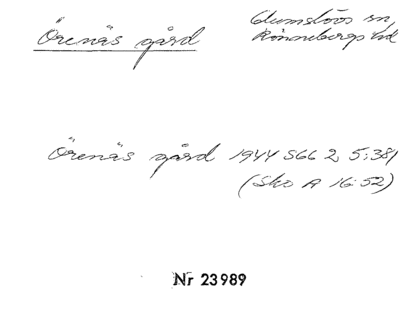 Örenäs gård
Glumslövs sn,
Rönnebergs hd
Örenäs gård 1944 S66 2 5:381
(Sko A 16:52)
Nr 23989